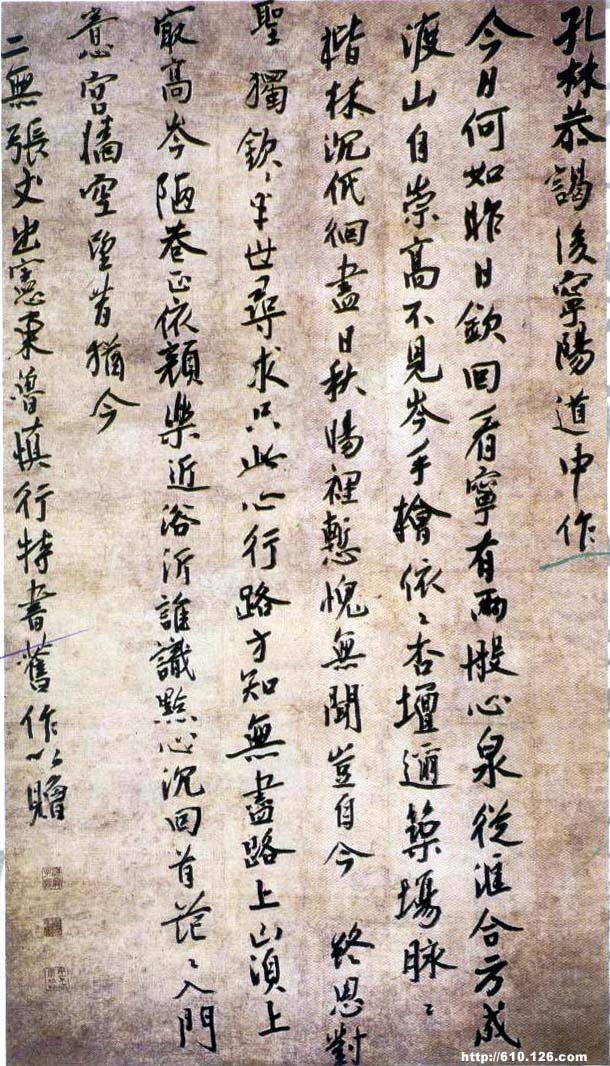 孔林恭謁後寧陽道中作
今日何如昨日欽回看寧有兩般心泉從滙合方成
渡山自崇高不見岑手檜依〻杏壇邇築場脉〻
楷林沉低徊盡日秋暘裡慙愧無聞豈自今 終思對
聖獨欽〻半世尋求只此心行路方知無盡路上山須上
最高岑陋巷正依顏樂近浴沂誰識點心沉回首茫〻入門
意宮牆空望昔猶今
二無張丈出憲東魯慎行特書舊作以贈
http://610.126.com